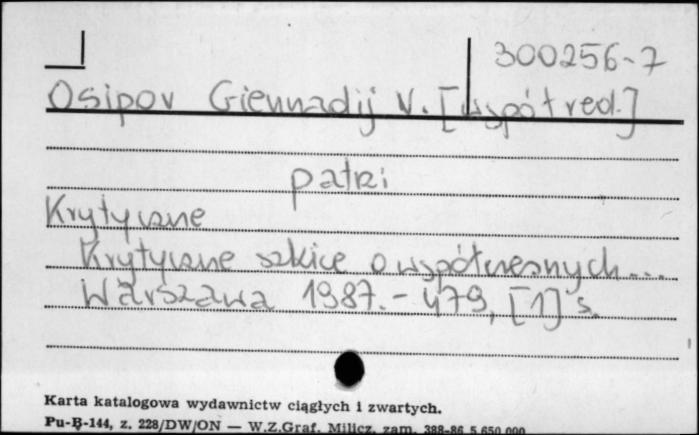 300256-7
Osipov Giennadij V. [współred.]
patrz
Krytyczne
Krytyczne szkice o współczesnych...
Warszawa 1987. - 479, [1] s.
Karta katalogowa wydawnictw ciągłych i zwartych.
Pu-B-144, z. 228/DW/ON — W.Z.Graf. Milicz, zam. 388-86 5.650.000